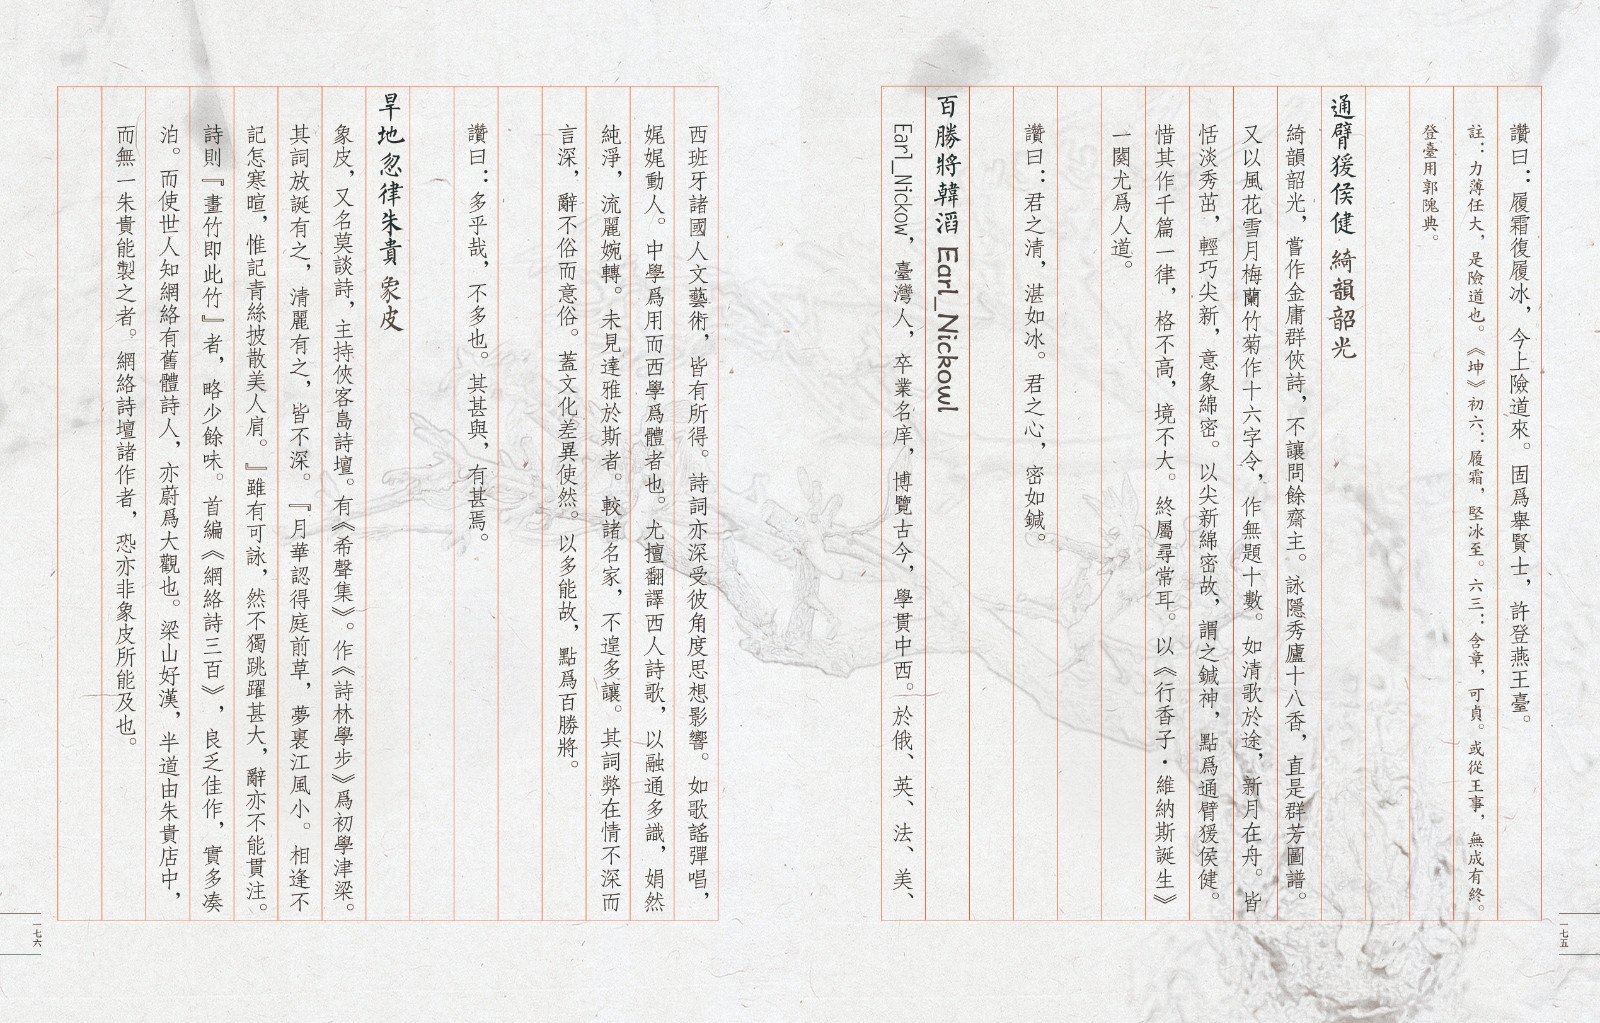 讚曰：履霜復履冰，今上險道來。固爲舉賢士，許登燕王臺。
註：力薄任大，是險道也。《坤》初六：履霜，堅冰至。六三：含章，可貞。或從王事，無成有終。
登臺用郭隗典。
通臂猨侯健 綺韻韶光
綺韻韶光，嘗作金庸群俠詩，不讓問餘齋主。詠隱秀廬十八香，直是群芳圖譜。
又以風花雪月梅蘭竹菊作十六字令，作無題十數。如清歌於途，新月在舟。皆
恬淡秀茁，輕巧尖新，意象綿密。以尖新綿密故，謂之鍼神，點爲通臂猨侯健。
惜其作千篇一律，格不高，境不大。終屬尋常耳。以《行香子・維納斯誕生》
一闋尤爲人道。
讚曰：君之清，湛如冰。君之心，密如鍼。
百勝將韓滔 Earl_Nickowl
Earl_Nickow，臺灣人，卒業名庠，博覽古今，學貫中西。於俄、英、法、美、
一七五
西班牙諸國人文藝術，皆有所得。詩詞亦深受彼角度思想影響。如歌謠彈唱，
娓娓動人。中學爲用而西學爲體者也。尤擅翻譯西人詩歌，以融通多識，娟然
純淨，流麗婉轉。未見達雅於斯者。較諸名家，不遑多讓。其詞弊在情不深而
言深，辭不俗而意俗。蓋文化差異使然。以多能故，點爲百勝將。
讚曰：多乎哉，不多也。其甚與，有甚焉。
旱地忽律朱貴 象皮
象皮，又名莫談詩，主持俠客島詩壇。有《希聲集》。作《詩林學步》爲初學津梁。
其詞放誕有之，清麗有之，皆不深。『月華認得庭前草，夢裏江風小。相逢不
記怎寒暄，惟記青絲披散美人肩。』雖有可詠，然不獨跳躍甚大，辭亦不能貫注。
詩則『畫竹即此竹』者，略少餘味。首編《網絡詩三百》，良乏佳作，實多凑
泊。而使世人知網絡有舊體詩人，亦蔚爲大觀也。梁山好漢，半道由朱貴店中，
而無一朱貴能製之者。網絡詩壇諸作者，恐亦非象皮所能及也。
一七六